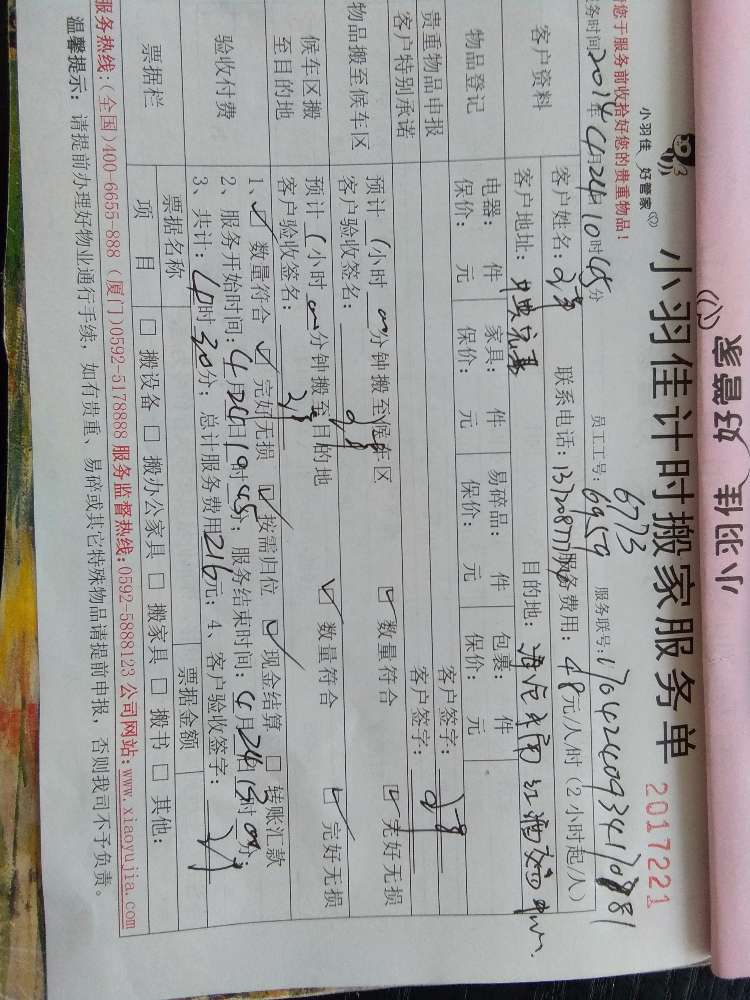 好管家
小羽佳
小羽佳 好管家
小羽佳计时搬家服务单
2017221
请您于服务前收拾好您的贵重物品！
6773
员工工号：6959
服务时间2017年4月24日10时45分
客户资料
客户姓名：
联系电话：
服务费用：48元/人/时（2小时起/人）
客户地址：
目的地：
物品登记
电器： 件 家具： 件 易碎品： 件 包裹： 件
保价： 元 保价： 元 保价： 元 保价： 元
贵重物品申报
客户签字：
客户特别承诺
客户签字：
物品搬至候车区
预计 1小时 分钟搬至候车区
数量符合
完好无损
客户验收签名：
候车区搬至目的地
预计 1小时 分钟搬至目的地
数量符合
完好无损
客户验收签名：
验收付费
1、 数量符合 完好无损 按需归位 现金结算 转账汇款
2、服务开始时间：4月24日10时45分； 服务结束时间：4月24日15时00分；
3、共计：4时30分；总计服务费用216元；4、客户验收签字：
票据栏
票据名称
票据金额
项目
搬设备 搬办公家具 搬家具 搬书 其他：
服务热线：(全国)400-6655-888 (厦门)0592-5178888 服务监督热线:0592-5888123 公司网站:www.xiaoyujia.com
温馨提示：请提前办理好物业通行手续，如有贵重、易碎或其它特殊物品请提前申报，否则我司不予负责。